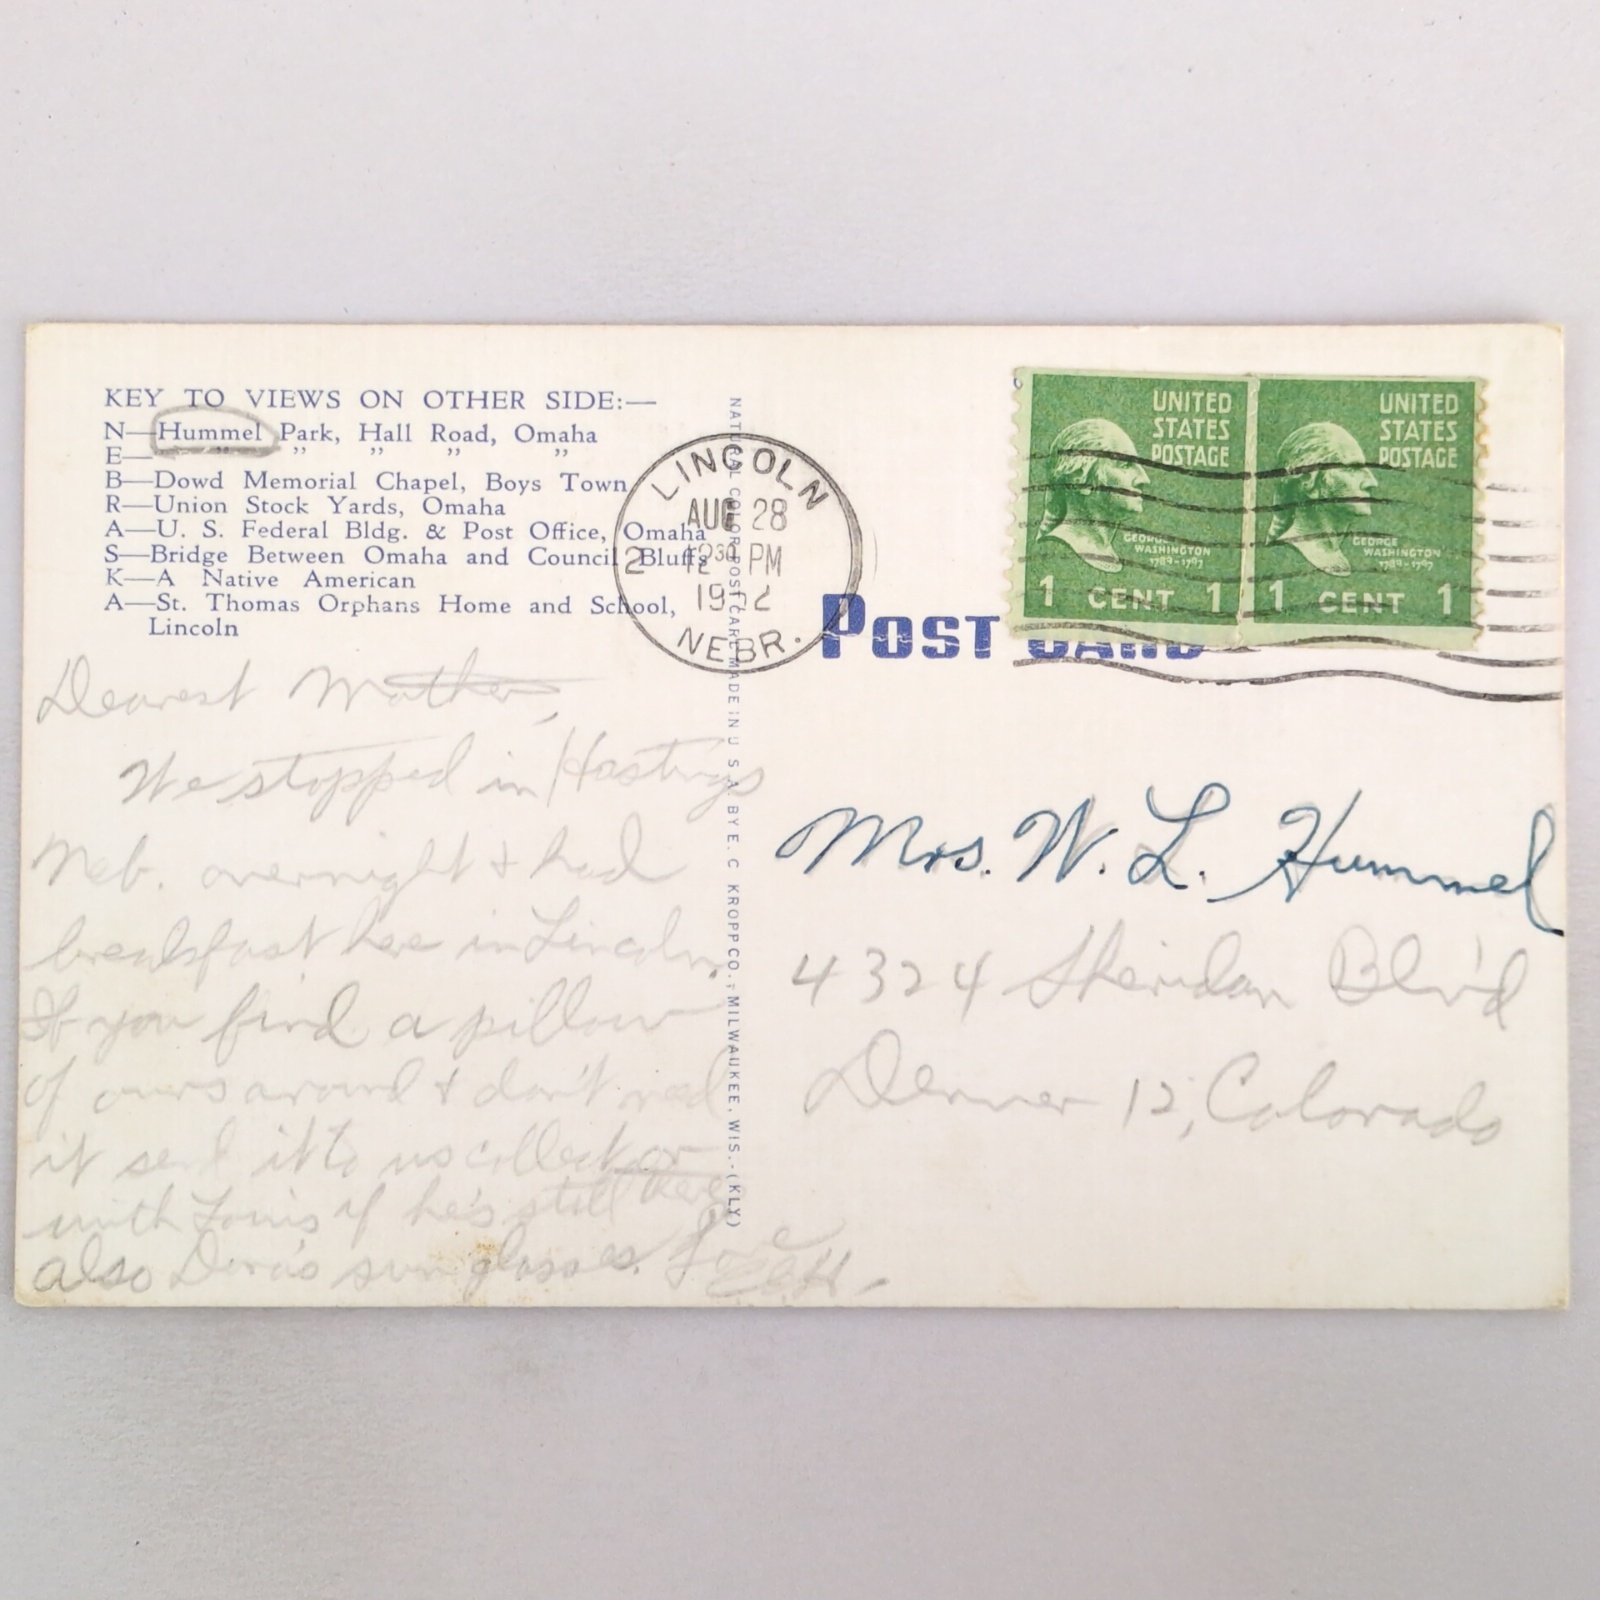 KEY TO VIEWS ON OTHER SIDE:—
N—Hummel Park, Hall Road, Omaha
E— " " " " "
B—Dowd Memorial Chapel, Boys Town
R—Union Stock Yards, Omaha
A—U. S. Federal Bldg. & Post Office, Omaha
S—Bridge Between Omaha and Council Bluffs
K—A Native American
A—St. Thomas Orphans Home and School,
Lincoln
Dearest Mother,
We stopped in Hastings
Neb. overnight & had
breakfast here in Lincoln.
If you find a pillow
of ours around & don't need
it send it to us collect or
with Louis if he's still there
also Dora's sun glasses. Love
NATURAL COLOR POST CARD MADE IN U. S. A. BY E. C. KROPP CO., MILWAUKEE, WIS.-(KLY)
LINCOLN
AUG 28
2 1230 PM
1952
NEBR.
POST CARD
UNITED STATES POSTAGE
GEORGE WASHINGTON
1789-1797
1 CENT 1
UNITED STATES POSTAGE
GEORGE WASHINGTON
1789-1797
1 CENT 1
Mrs. W. L. Hummel
4324 Sheridan Blv'd
Denver 12, Colorado